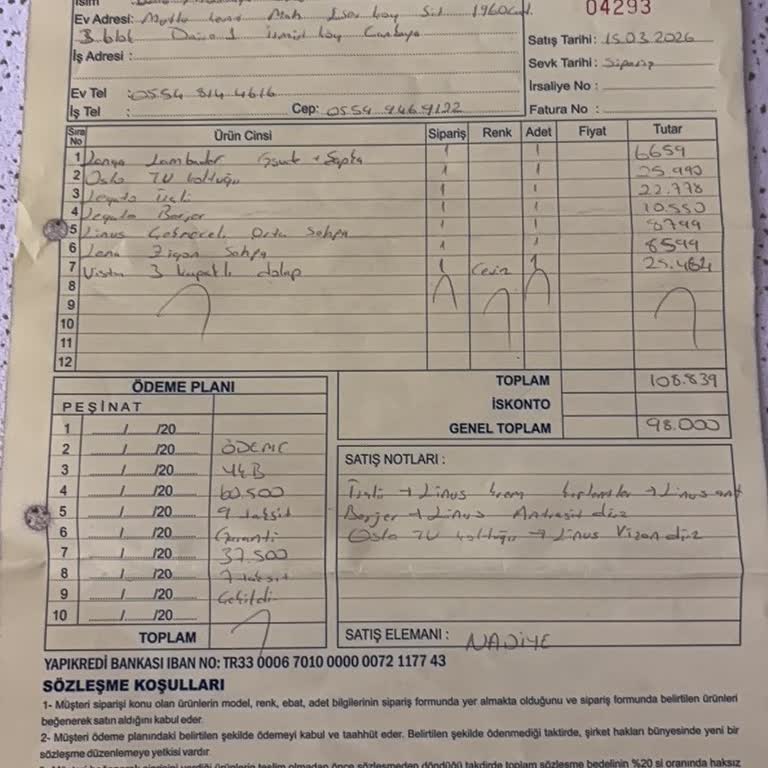 İsim
Ev Adresi: Mutlu kent Mah 1960 Cad.
04293
3. blok Daire 1 Çankaya
Satış Tarihi : 15.03.2026
İş Adresi :
Sevk Tarihi : Sipariş
İrsaliye No :
Ev Tel : 0554 814 4616
İş Tel : Cep: 0554 946 9122
Fatura No :
Sıra No Ürün Cinsi Sipariş Renk Adet Fiyat Tutar
1 Lambader + Sapka 1 1 6659
2 Oslo TV koltuğu 1 1 25.990
3 Legato Üçlü 1 1 22.778
4 Legato Berjer 1 1 10.550
5 Linus Orta Sehpa 1 1 8799
6 Lena Zigon Sehpa 1 1 8599
7 3 kapaklı dolap 1 Ceviz 1 25.464
8
9
10
11
12
ÖDEME PLANI
PEŞİNAT
1 ....../....../20
2 ....../....../20 ÖDEME
3 ....../....../20 YKB
4 ....../....../20 60.500
5 ....../....../20 9 taksit
6 ....../....../20 Garanti
7 ....../....../20 37.500
8 ....../....../20 7 taksit
9 ....../....../20 Çekildi
10 ....../....../20
TOPLAM
TOPLAM 108.839
İSKONTO
GENEL TOPLAM 98.000
SATIŞ NOTLARI :
Üçlü → Linus krem kırlentler → Linus ant
Berjer → Linus Antrasit düz
Oslo TV koltuğu → Linus Vizon düz
SATIŞ ELEMANI : NADİYE
YAPIKREDİ BANKASI IBAN NO: TR33 0006 7010 0000 0072 1177 43
SÖZLEŞME KOŞULLARI
1- Müşteri siparişi konu olan ürünlerin model, renk, ebat, adet bilgilerinin sipariş formunda yer almakta olduğunu ve sipariş formunda belirtilen ürünleri
beğenerek satın aldığını kabul eder.
2- Müşteri ödeme planındaki belirtilen şekilde ödemeyi kabul ve taahhüt eder. Belirtilen şekilde ödenmediği taktirde, şirket hakları bünyesinde yeni bir
sözleşme düzenlemeye yetkisi vardır.
teslim olmadan önce sözleşmeden döndüğü takdirde toplam sözleşme bedelinin %20 si oranında haksız